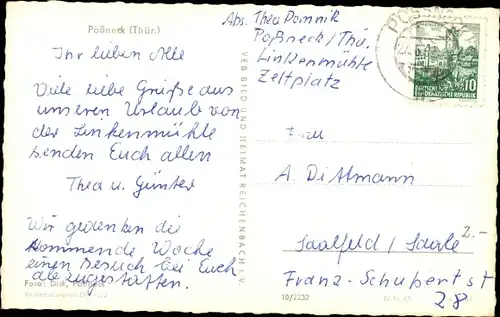 Pößneck (Thür.)
Ihr lieben Alle
Viele liebe Grüße aus
unseren Urlaub von
der Linkenmühle
senden Euch allen
Thea u. Günter
Wir gedenken die
kommende Woche
einen Besuch bei Euch
abzugestatten.
Foto: Dick, Pößneck
VEB BILD UND HEIMAT REICHENBACH i. V.
Abs. Thea Pomnik
Poßneck / Thü.
Linkenmühle
Zeltplatz
PÖSSNECK
10
DEUTSCHE
DEMOKRATISCHE REPUBLIK
Frau
A. Dittmann
2.-
Saalfeld / Saale
Franz-Schubert st
28
10/2232